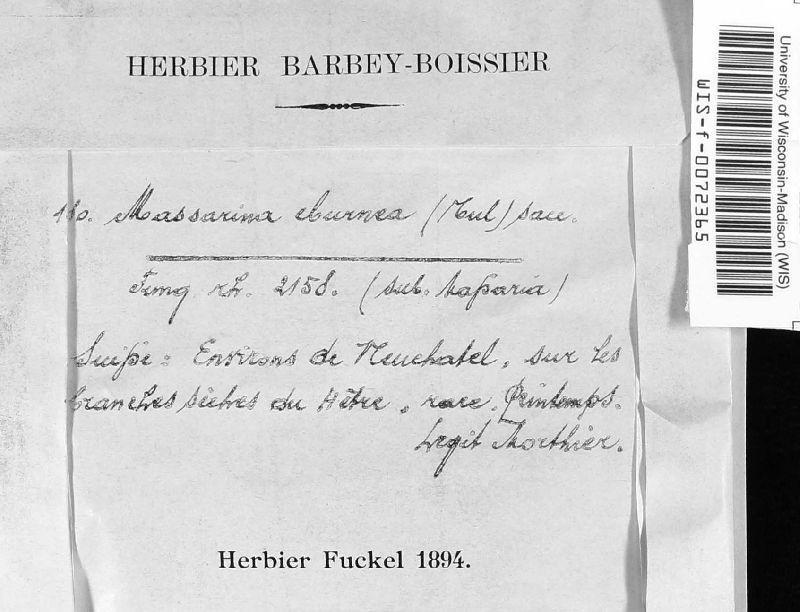 HERBIER BARBEY-BOISSIER
110. Massarina eburnea (Tul) sacc.
Fung rh. 2158. (sub.
Suisse: Environs de Neuchatel, sur les
branches sèches du Hêtre, rare. Printemps.
Legit Morthier.
Herbier Fuckel 1894.
University of Wisconsin-Madison (WIS)
WIS-f-0072365